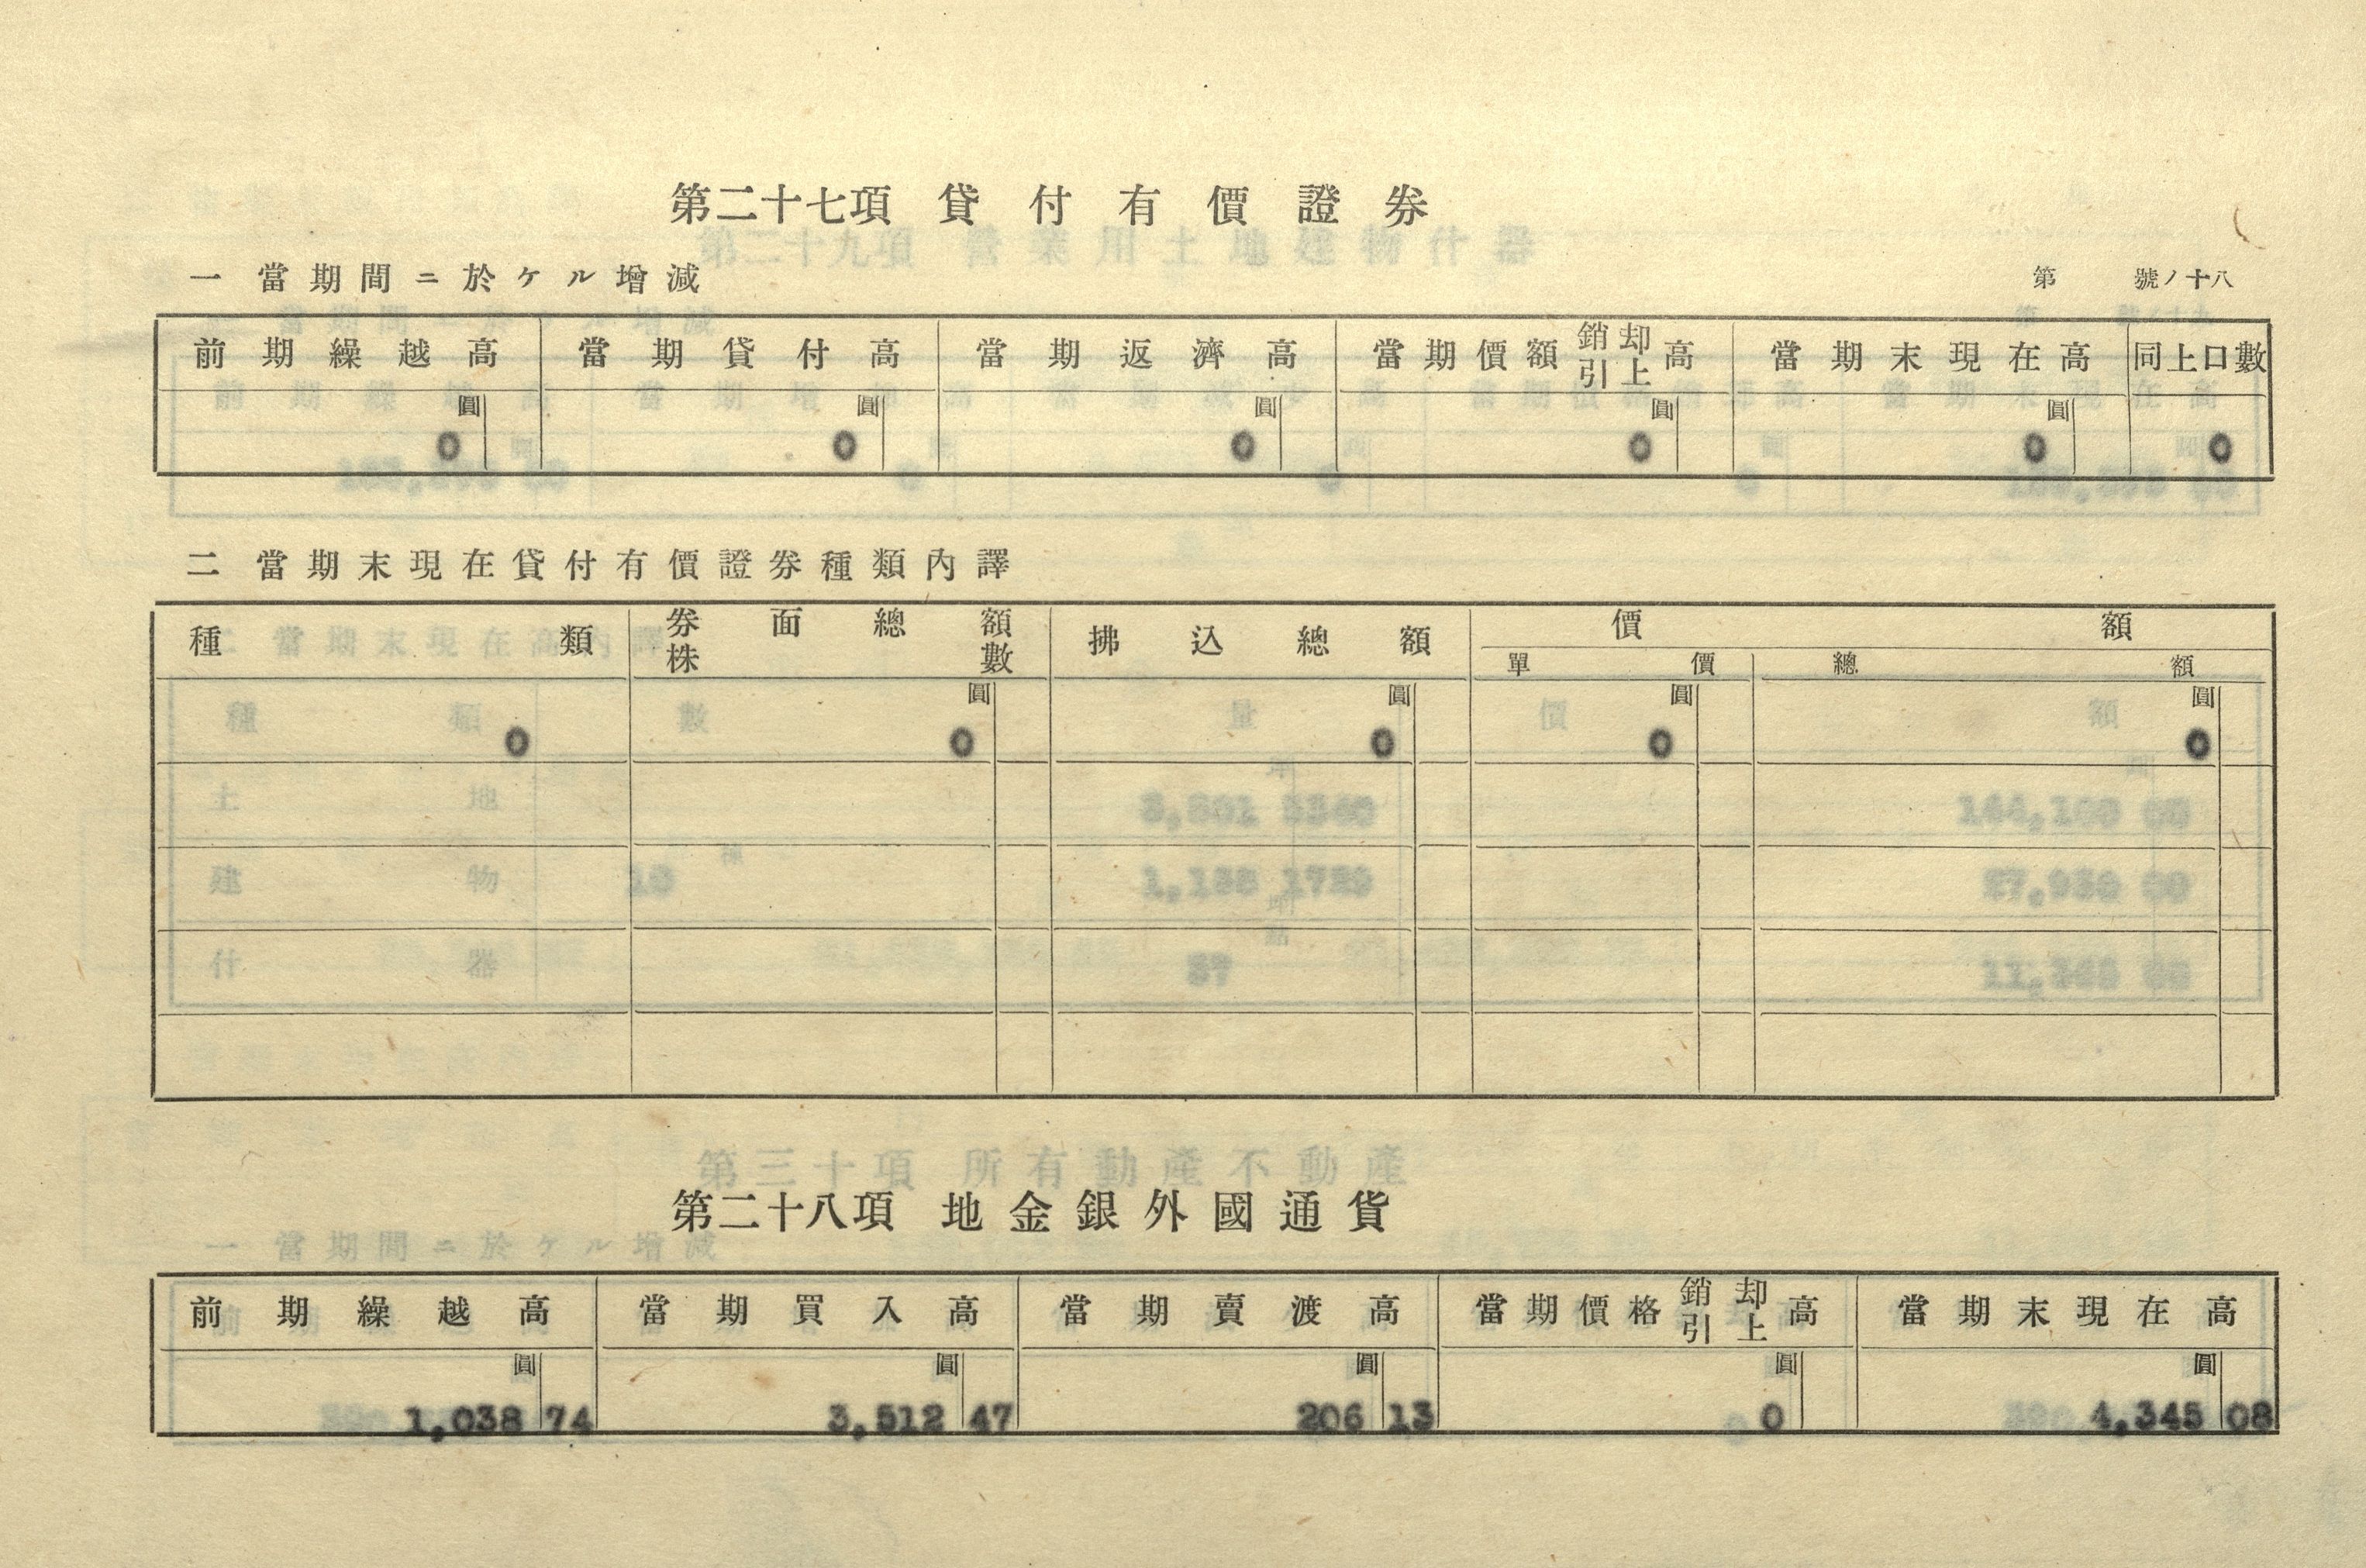 第二十七項 貸付有價證券
一 當期間ニ於ケル增減 第 號ノ十八
前期繰越高 當期貸付高 當期返濟高 當期價額銷却引上高 當期末現在高 同上口數
圓 圓 圓 圓 圓
0 0 0 0 0 0
二 當期末現在貸付有價證券種類內譯
種類 券面總額 株數 拂込總額 價額
單價 總額
圓 圓 圓 圓
0 0 0 0 0
第二十八項 地金銀外國通貨
前期繰越高 當期買入高 當期賣渡高 當期價格銷却引上高 當期末現在高
圓 圓 圓 圓 圓
1,038 74 3,512 47 206 13 0 4,345 08